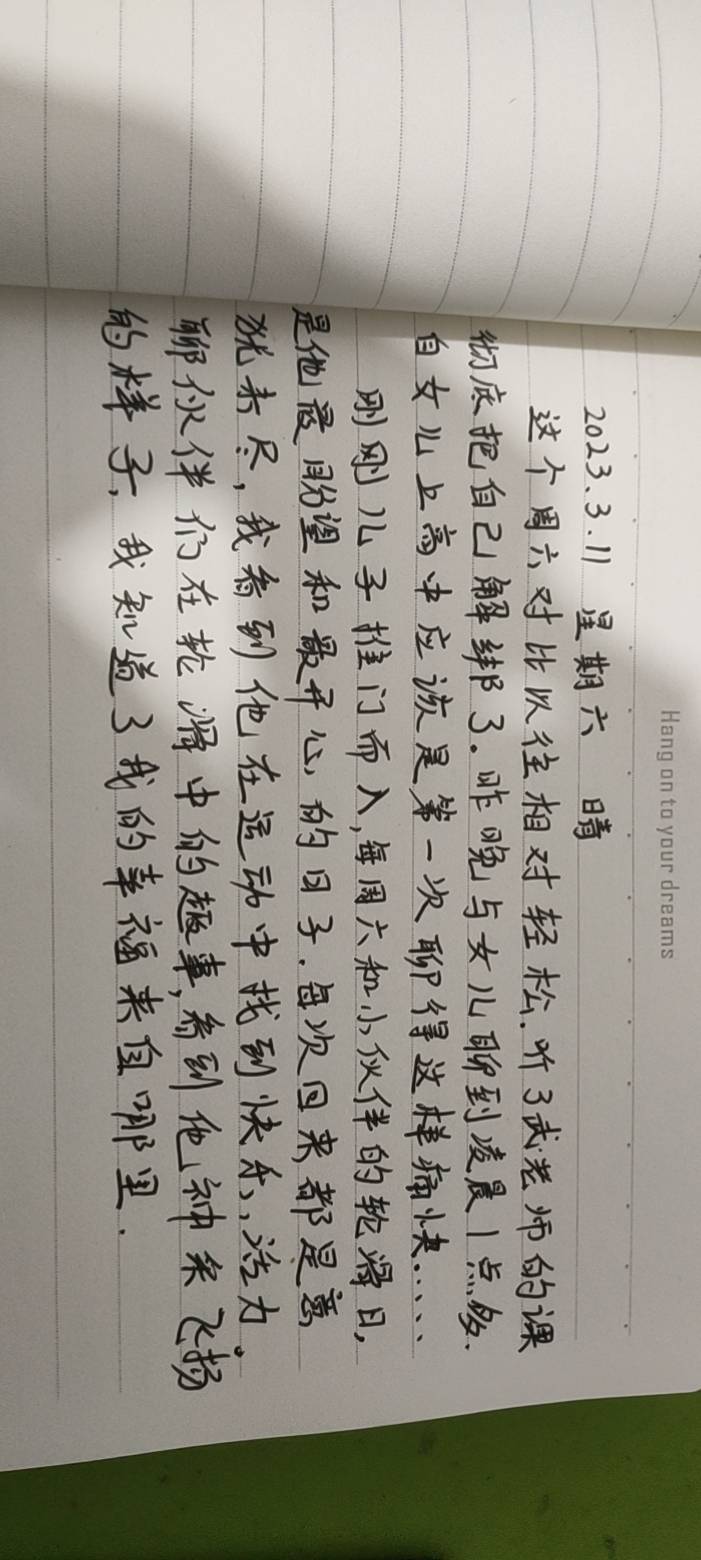 Hang on to your dreams
2023.3.11 星期六 晴
这个周六对比以往相对轻松.听了武老师的课
彻底把自己解绑了.昨晚与女儿聊到凌晨1点多.
自女儿上高中应该是第一次聊得这样痛快.....
刚刚儿子推门而入,每周六和小伙伴的轮滑日,
是他最盼望和最开心的日子.每次回来都是意
犹未尽,我看到他在运动中找到快乐,活力。
聊伙伴们在轮滑中的趣事,看到他神采飞扬
的样子,我知道了我的幸福来自哪里.